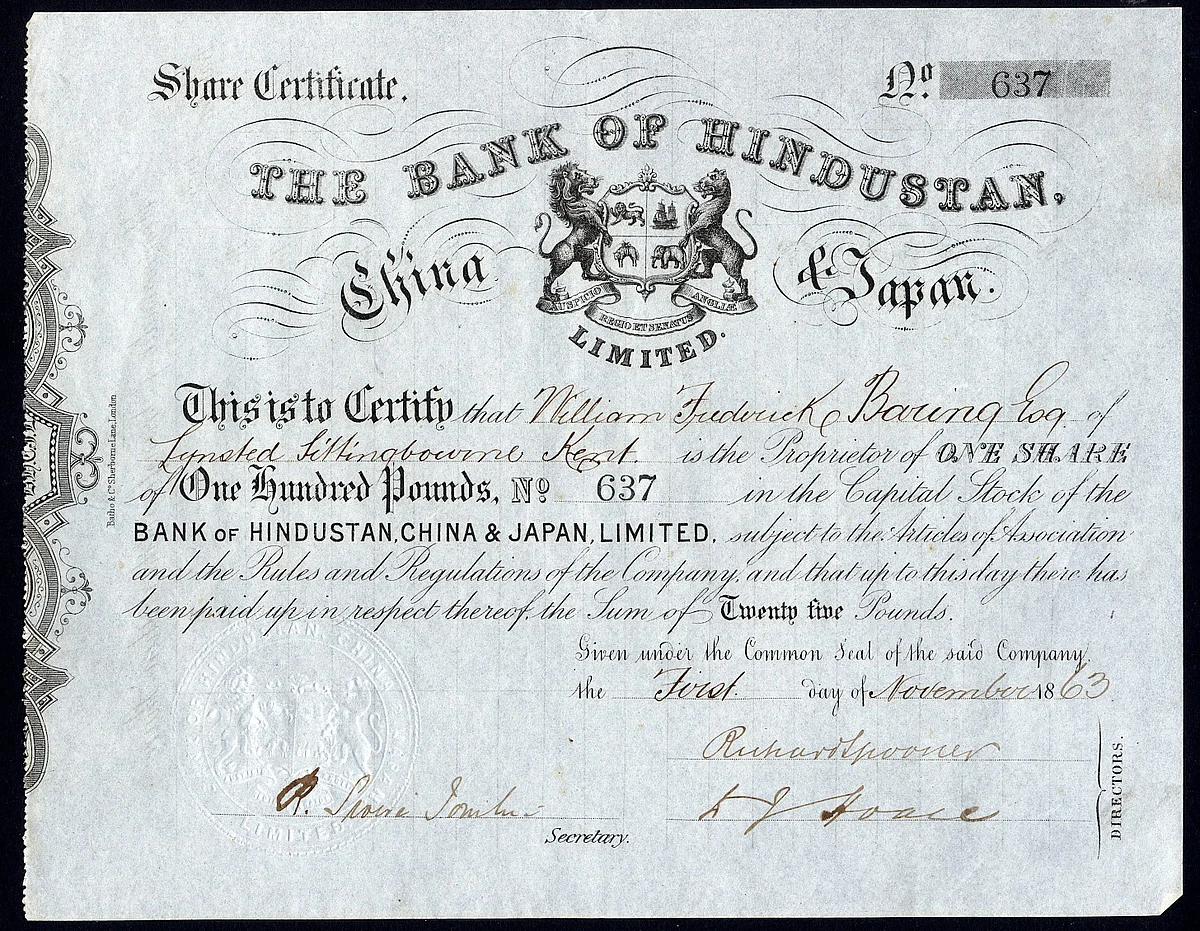 Share Certificate.
No. 637
THE BANK OF HINDUSTAN,
China & Japan.
AUSPICIO REGIO ET SENATUS ANGLIÆ
LIMITED.
This is to Certify that William Frederick Baring Esq. of
Lynsted Sittingbourne Kent. is the Proprietor of ONE SHARE
of One Hundred Pounds, No 637 in the Capital Stock of the
BANK OF HINDUSTAN, CHINA & JAPAN, LIMITED, subject to the Articles of Association
and the Rules and Regulations of the Company, and that up to this day there has
been paid up in respect thereof, the Sum of Twenty five Pounds.
Given under the Common Seal of the said Company,
the First day of November 1863
Richard Spooner
Secretary.
DIRECTORS.
Batho & Co. Sherborne Lane, London
LIMITED